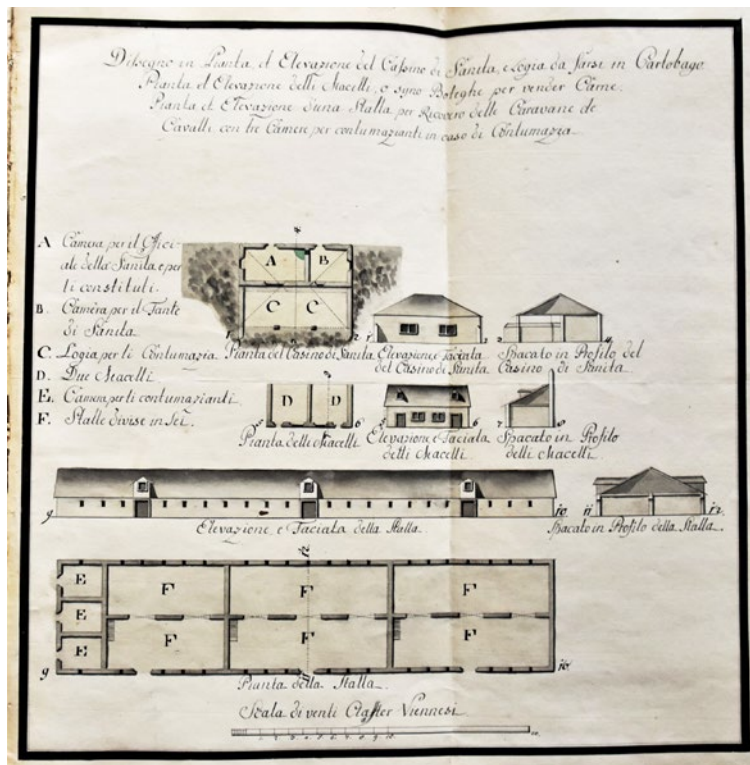 Dissegno in Pianta, et Elevazione del Cassino di Sanita, e Logia da Farsi in Carlobago
Pianta et Elevazione delli Macelli, o syno Boteghe per vender Carne.
Pianta et Elevazione d'una Stalla per Ricovero delle Caravane de
Cavalli con tre Camere per contumazianti in caso di Contumazia.
A Camera per il Offici-
ale della Sanita e per
li constituti.
B. Camera per il Fante
di Sanita
C. Logia per li Contumazia.
D. Due Macelli
E. Camera per li contumazianti.
F. Stalle divise in Sei.
A
B
C
C
1
2
Pianta del Casino di Sanita.
1
2
Elevazione, e Faciata
del Casino di Sanita.
3
4
Spacato in Profilo del
Casino di Sanita.
D
D
5
6
Pianta delli Macelli
5
6
Elevazione e Faciata
delli Macelli.
7
8
Spacato in Profilo
delli Macelli.
9
10
Elevazione, e Faciata della Stalla.
11
12
Spacato in Profilo della Stalla.
12
E
E
E
F
F
F
F
F
F
9
11
10
Pianta della Stalla.
Scala di venti Claffter Viennesi
1 2 3 4 5 6 7 8 9 10
20